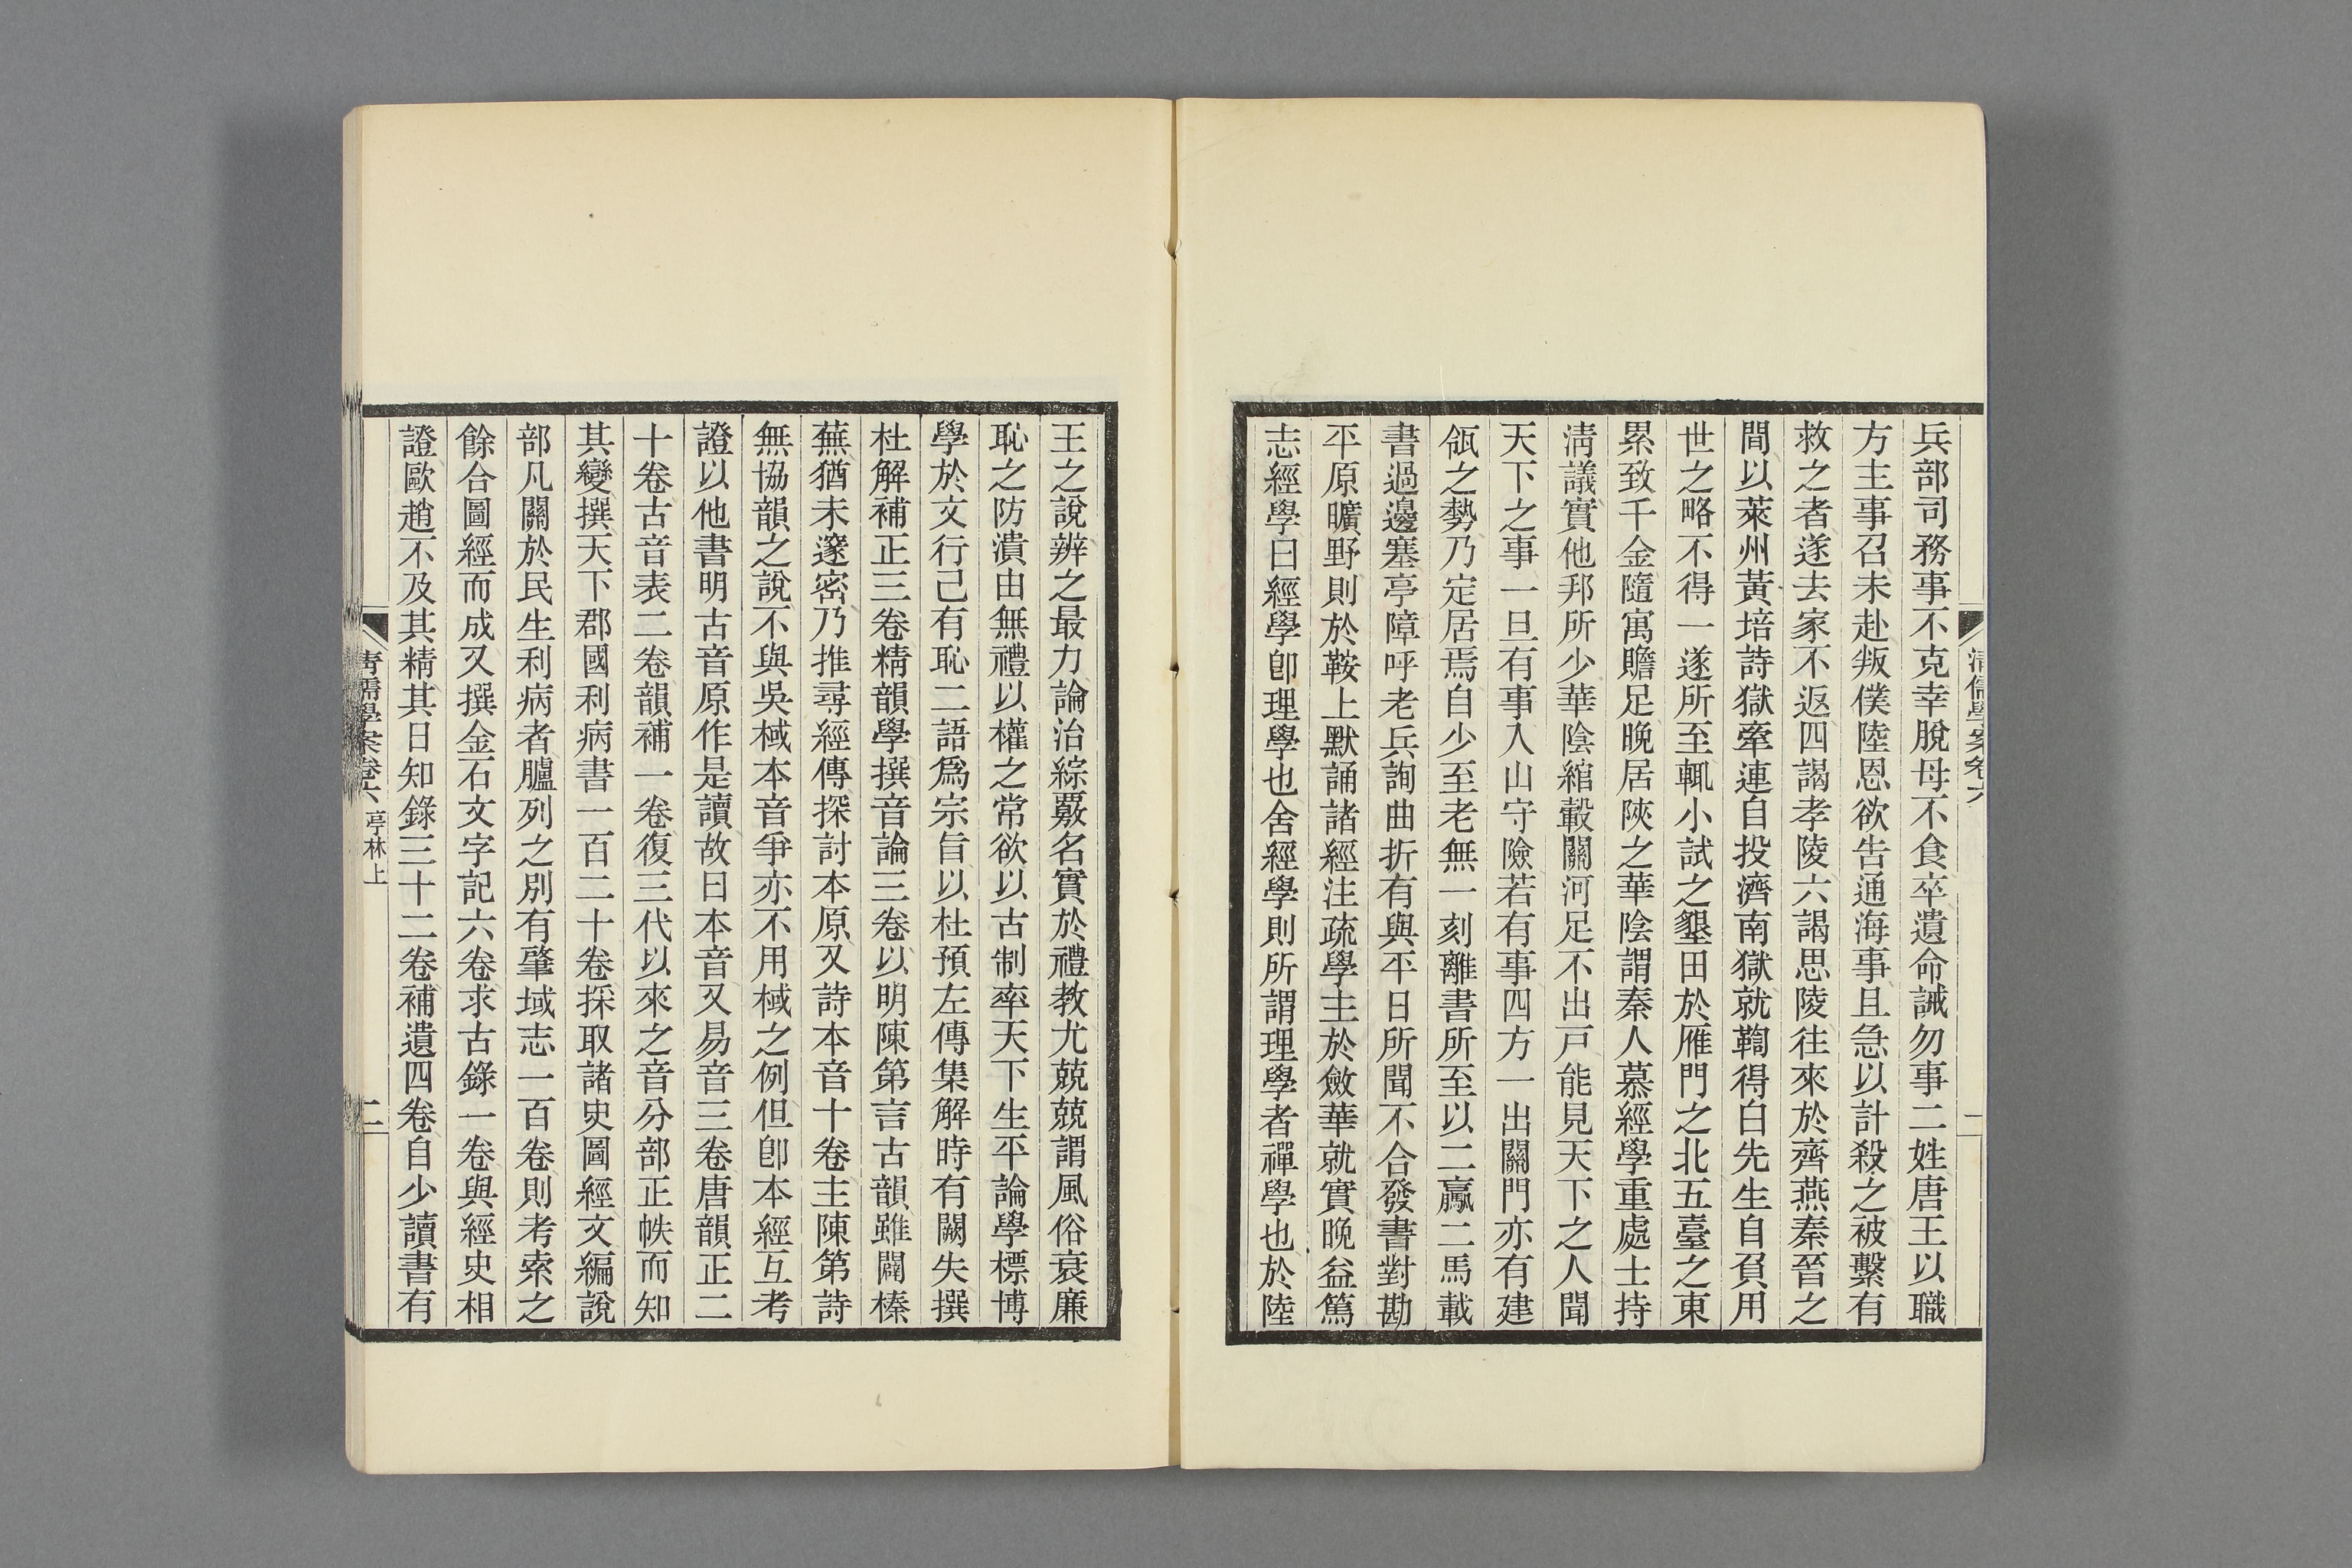 清儒學案卷六
一
兵部司務事不克幸脫母不食卒遺命誡勿事二姓唐王以職
方主事召未赴叛僕陸恩欲告通海事且急以計殺之被繫有
救之者遂去家不返四謁孝陵六謁思陵往來於齊燕秦晉之
間以萊州黃培詩獄牽連自投濟南獄就鞫得白先生自負用
世之略不得一遂所至輒小試之墾田於雁門之北五臺之東
累致千金隨寓贍足晚居陝之華陰謂秦人慕經學重處士持
淸議實他邦所少華陰綰轂關河足不出戸能見天下之人聞
天下之事一旦有事入山守險若有事四方一出關門亦有建
瓴之勢乃定居焉自少至老無一刻離書所至以二驘二馬載
書過邊塞亭障呼老兵詢曲折有與平日所聞不合發書對勘
平原曠野則於鞍上默誦諸經注疏學主於斂華就實晚益篤
志經學曰經學卽理學也舍經學則所謂理學者禪學也於陸
王之說辨之最力論治綜覈名實於禮教尤兢兢謂風俗衰廉
恥之防潰由無禮以權之常欲以古制率天下生平論學標博
學於文行己有恥二語爲宗旨以杜預左傳集解時有闕失撰
杜解補正三卷精韻學撰音論三卷以明陳第言古韻雖闢榛
蕪猶未邃密乃推尋經傳探討本原又詩本音十卷主陳第詩
無協韻之說不與吳棫本音爭亦不用棫之例但卽本經互考
證以他書明古音原作是讀故曰本音又易音三卷唐韻正二
十卷古音表二卷韻補一卷復三代以來之音分部正帙而知
其變撰天下郡國利病書一百二十卷採取諸史圖經文編說
部凡關於民生利病者臚列之別有肇域志一百卷則考索之
餘合圖經而成又撰金石文字記六卷求古錄一卷與經史相
證歐趙不及其精其日知錄三十二卷補遺四卷自少讀書有
清儒學案卷六 亭林上
二